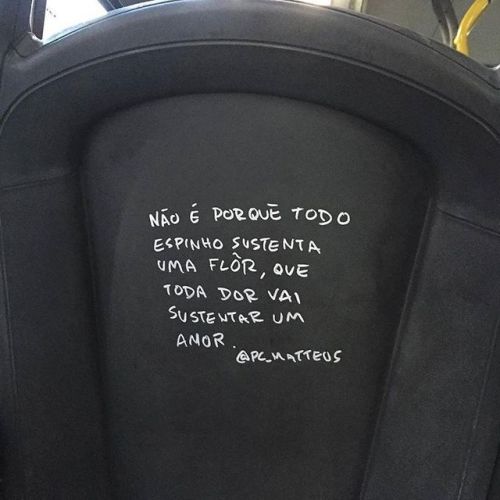 NÃO É PORQUÊ TODO
ESPINHO SUSTENTA
UMA FLÔR, QUE
TODA DOR VAI
SUSTENTAR UM
AMOR.
@PC_MATTEUS